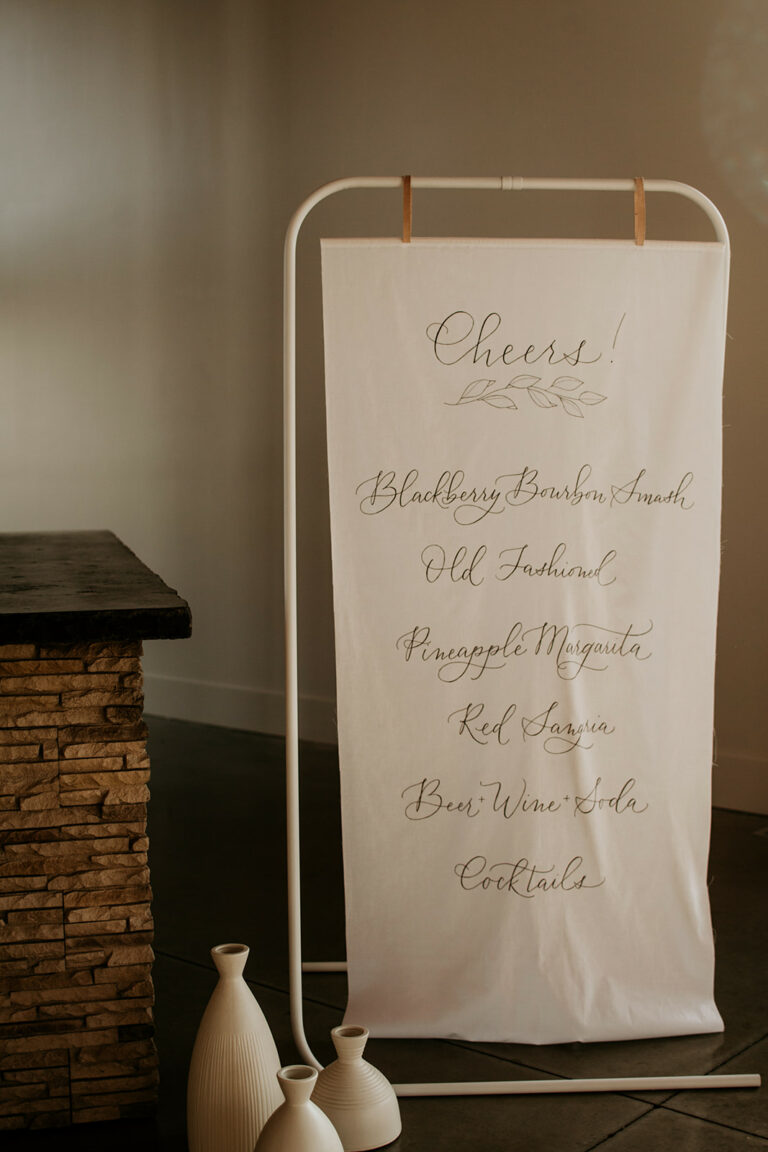 Cheers!
Blackberry Bourbon Smash
Old Fashioned
Pineapple Margarita
Red Sangria
Beer + Wine + Soda
Cocktails